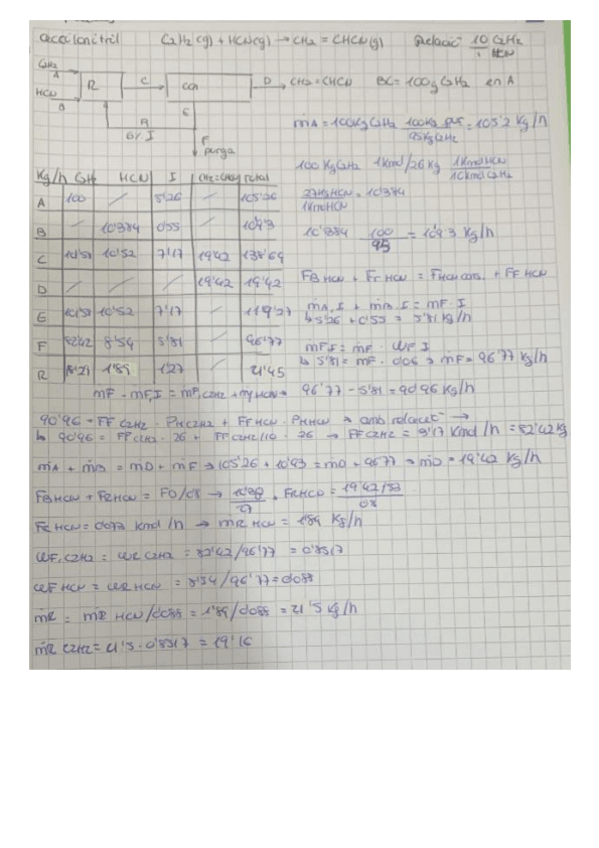 C2H2(g) + HCN(g) → CH2 = CHCN(g) 10 C2H2
HCN
C2H2 A R C D → CH2=CHCN BC = 100g C2H2 en A
HCN B
E
R
6% I F
purga
ṁA = 100Kg C2H2 100Kg / 95Kg C2H2 = 105'2 Kg/h
100 Kg C2H2 1Kmol/26 Kg 1Kmol HCN / 10 Kmol C2H2
27Kg HCN / 1Kmol HCN = 10'384
10'384 100/95 = 10'93 Kg/h
Kg/h C2H2 HCN I CH2=CHCN Total
A 100 / 5'26 / 105'26
B / 10'384 0'55 / 10'93
C 10'52 7'17 19'42 138'69
D / / / 19'42 19'42
E 10'52 7'17 / 119'27
F 82'42 8'54 5'81 / 96'77
R 1'89 1'27 / 21'45
FB HCN + Fr HCN = FHCN cons. + FF HCN
ṁA,I + ṁB I = mF · I
↳ 5'26 + 0'55 = 5'81 Kg/h
mF I = ṁF · WF I
↳ 5'81 = mF · 0'06 → ṁF = 96'77 Kg/h
mF - mF,I = mF,C2H2 + mF,HCN → 96'77 - 5'81 = 90'96 Kg/h
90'96 = FF C2H2 · PM C2H2 + FF HCN · PM HCN →
↳ 90'96 = FF C2H2 · 26 + FF C2H2/10 · 26 → FF C2H2 = 3'17 Kmol/h = 82'42 Kg
ṁA + ṁB = mD + ṁF → 105'26 + 10'93 = mD + 96'77 → ṁD = 19'42 Kg/h
FB HCN + FR HCN = FD/0'8 → + FR HCN = 19'42/53 / 0'8
FR HCN = 0'07 Kmol/h → ṁR HCN = 1'89 Kg/h
WF, C2H2 = WR C2H2 = 82'42/96'77 = 0'8517
WF HCN = WR HCN = 8'54/96'77 = 0'088
ṁR = ṁR HCN/0'088 = 1'89/0'088 = 21'5 Kg/h
ṁR C2H2 = 21'5 · 0'8517 = 19'16